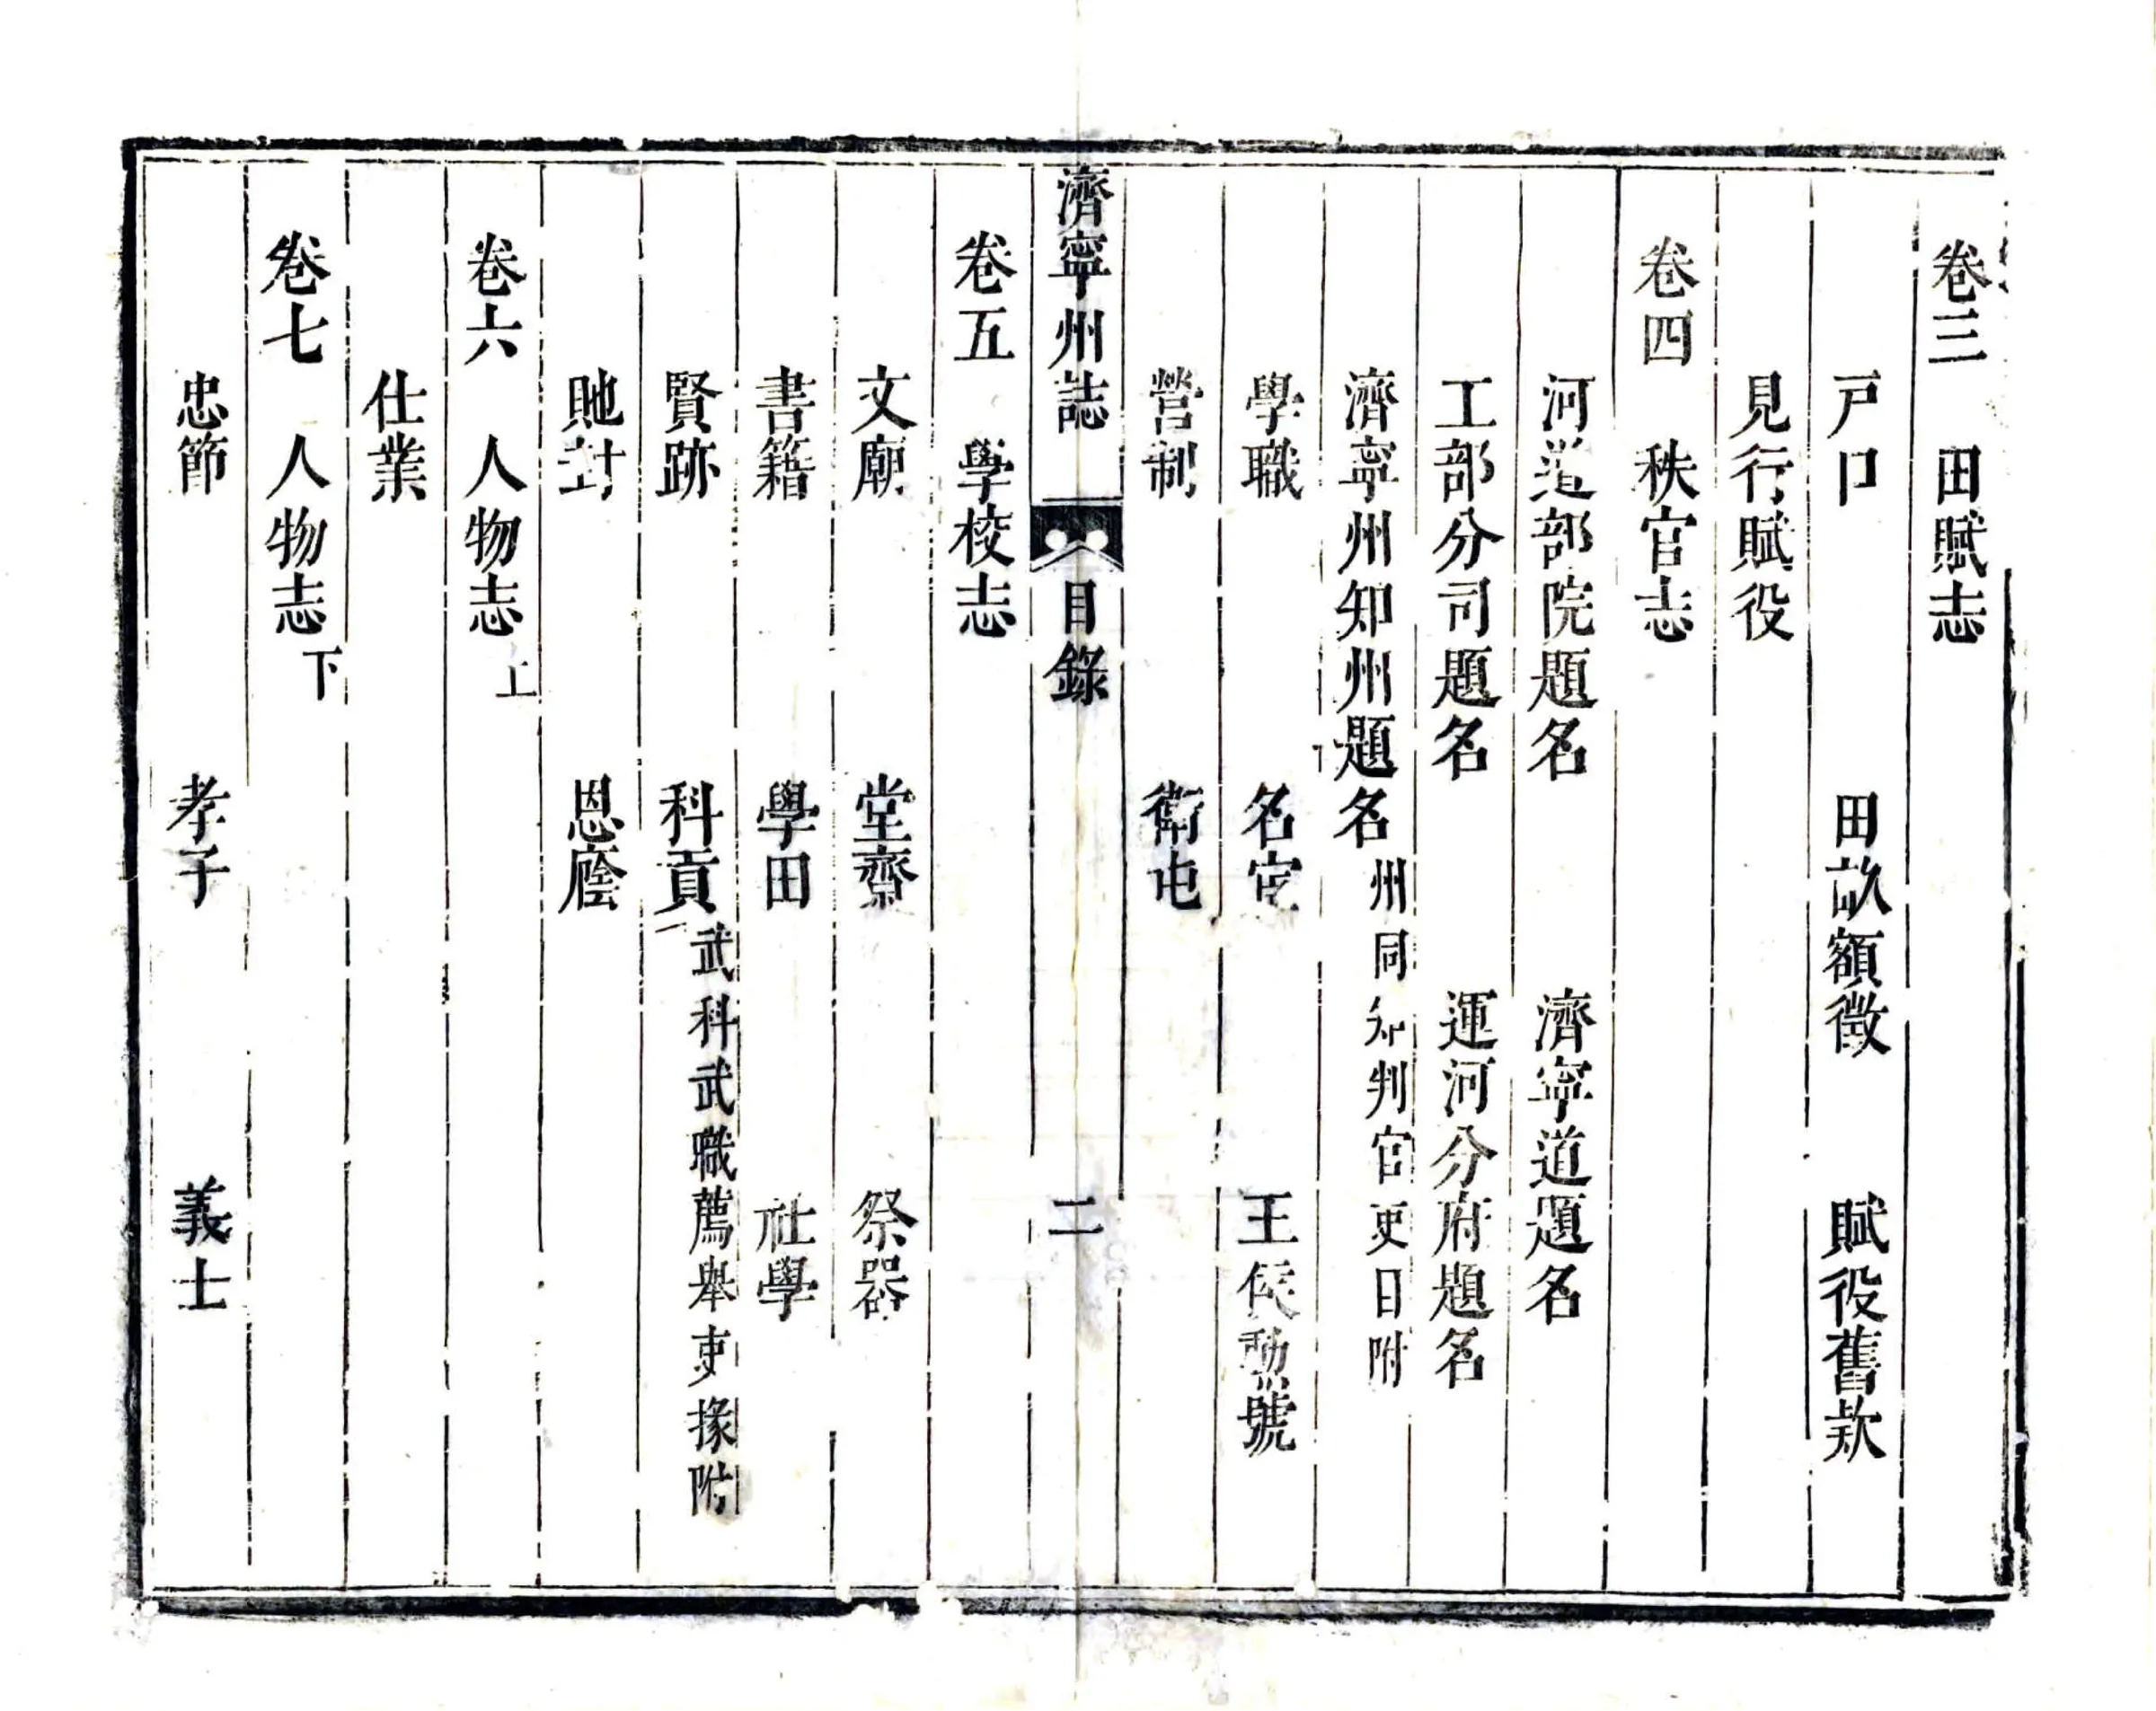 卷三　田賦志
戸口　田畝額徵　賦役舊欵
見行賦役
卷四　秩官志
河道部院題名　濟寧道題名
工部分司題名　運河分府題名
濟寧州知州題名 州同知判官吏目附
學職　名宦　王侯勳號
營制　衛屯
濟寧州誌　目錄　二
卷五　學校志
文廟　堂齋　祭器
書籍　學田　社學
賢跡　科貢 武科武職薦舉吏掾附
貤封　恩廕
卷六　人物志 上
仕業
卷七　人物志 下
忠節　孝子　義士